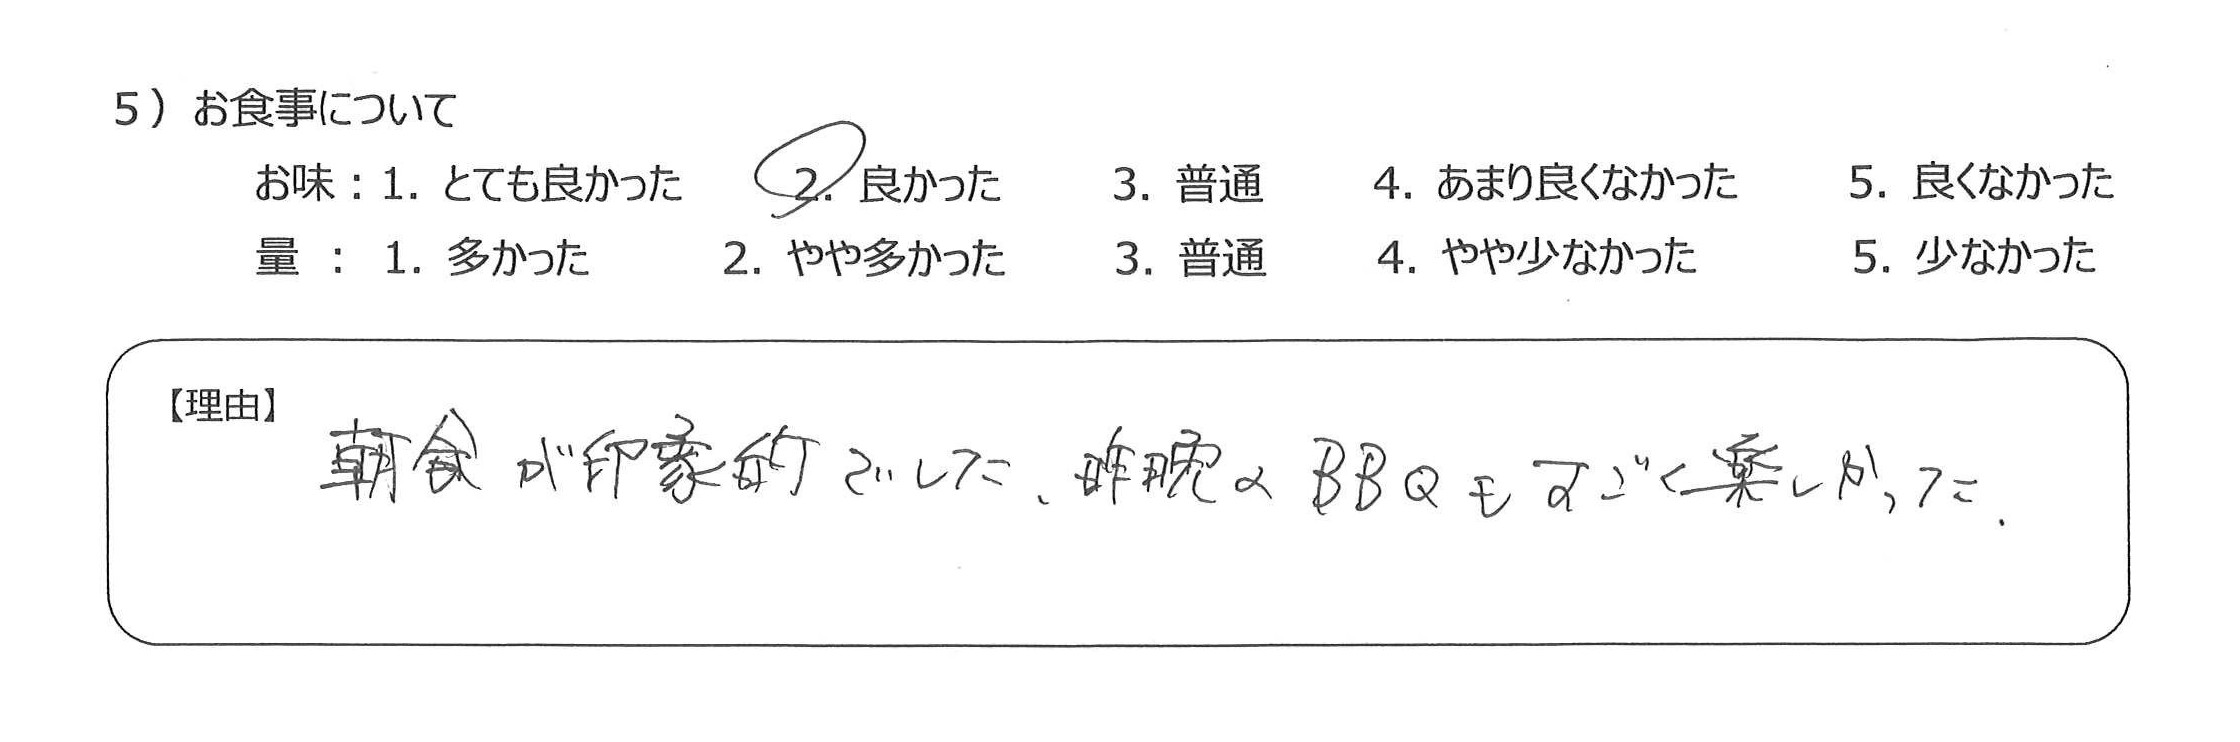 5）お食事について
お味：1. とても良かった 2. 良かった 3. 普通 4. あまり良くなかった 5. 良くなかった
量 ： 1. 多かった 2. やや多かった 3. 普通 4. やや少なかった 5. 少なかった
【理由】
朝食が印象的でした、昨晩のBBQもすごく楽しかった.